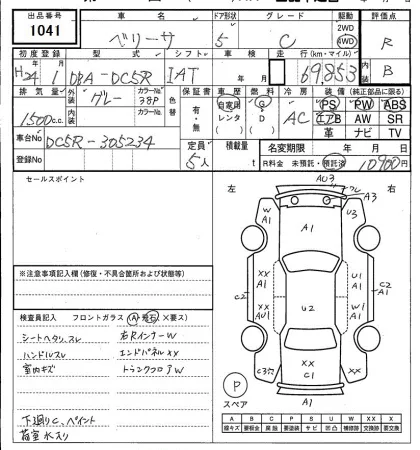 出品番号 車名 ドア形状 グレード 駆動 評価点
1041 ベリーサ 5 C 2WD 4WD R
初度登録 型式 シフト 車検 走行(km・マイル) 内装
H24 1 DBA-DC5R IAT 年 月 69,853 B
排気量 外装 カラーNo. 色替 保証書 車歴 燃料 冷房 装備(純正部品に限る)
1500c.c. グレー 38P 有・無 自家用 レンタ G・D AC PS PW ABS
内装 カラーNo. エアB AW SR
車台No. DC5R-305234 定員 積載量 革 ナビ TV
登録No. 5人 t 名変期限 年 月 日
R料金 未預託・預託済 10900円
セールスポイント
左 右
AU3
A3
W A1 A1 U3
XX AU1 U1 A1
C2 U2 C2
XX A1 W A1
XX C1
C3穴 XX
A1
P
スペア
※注意事項記入欄(修復・不具合箇所および状態等)
検査員記入欄 フロントガラス (A・飛石・X要ス)
シートヘタリ、スレ 右RインナーW
ハンドルスレ エンドパネルXX
室内キズ トランクフロアW
下廻りC、ペイント
荷室水入り
A B C P S U W X XX
線キズ 要板金 腐蝕 要塗装 サビ 凹凸 補修跡 交換跡 交換済